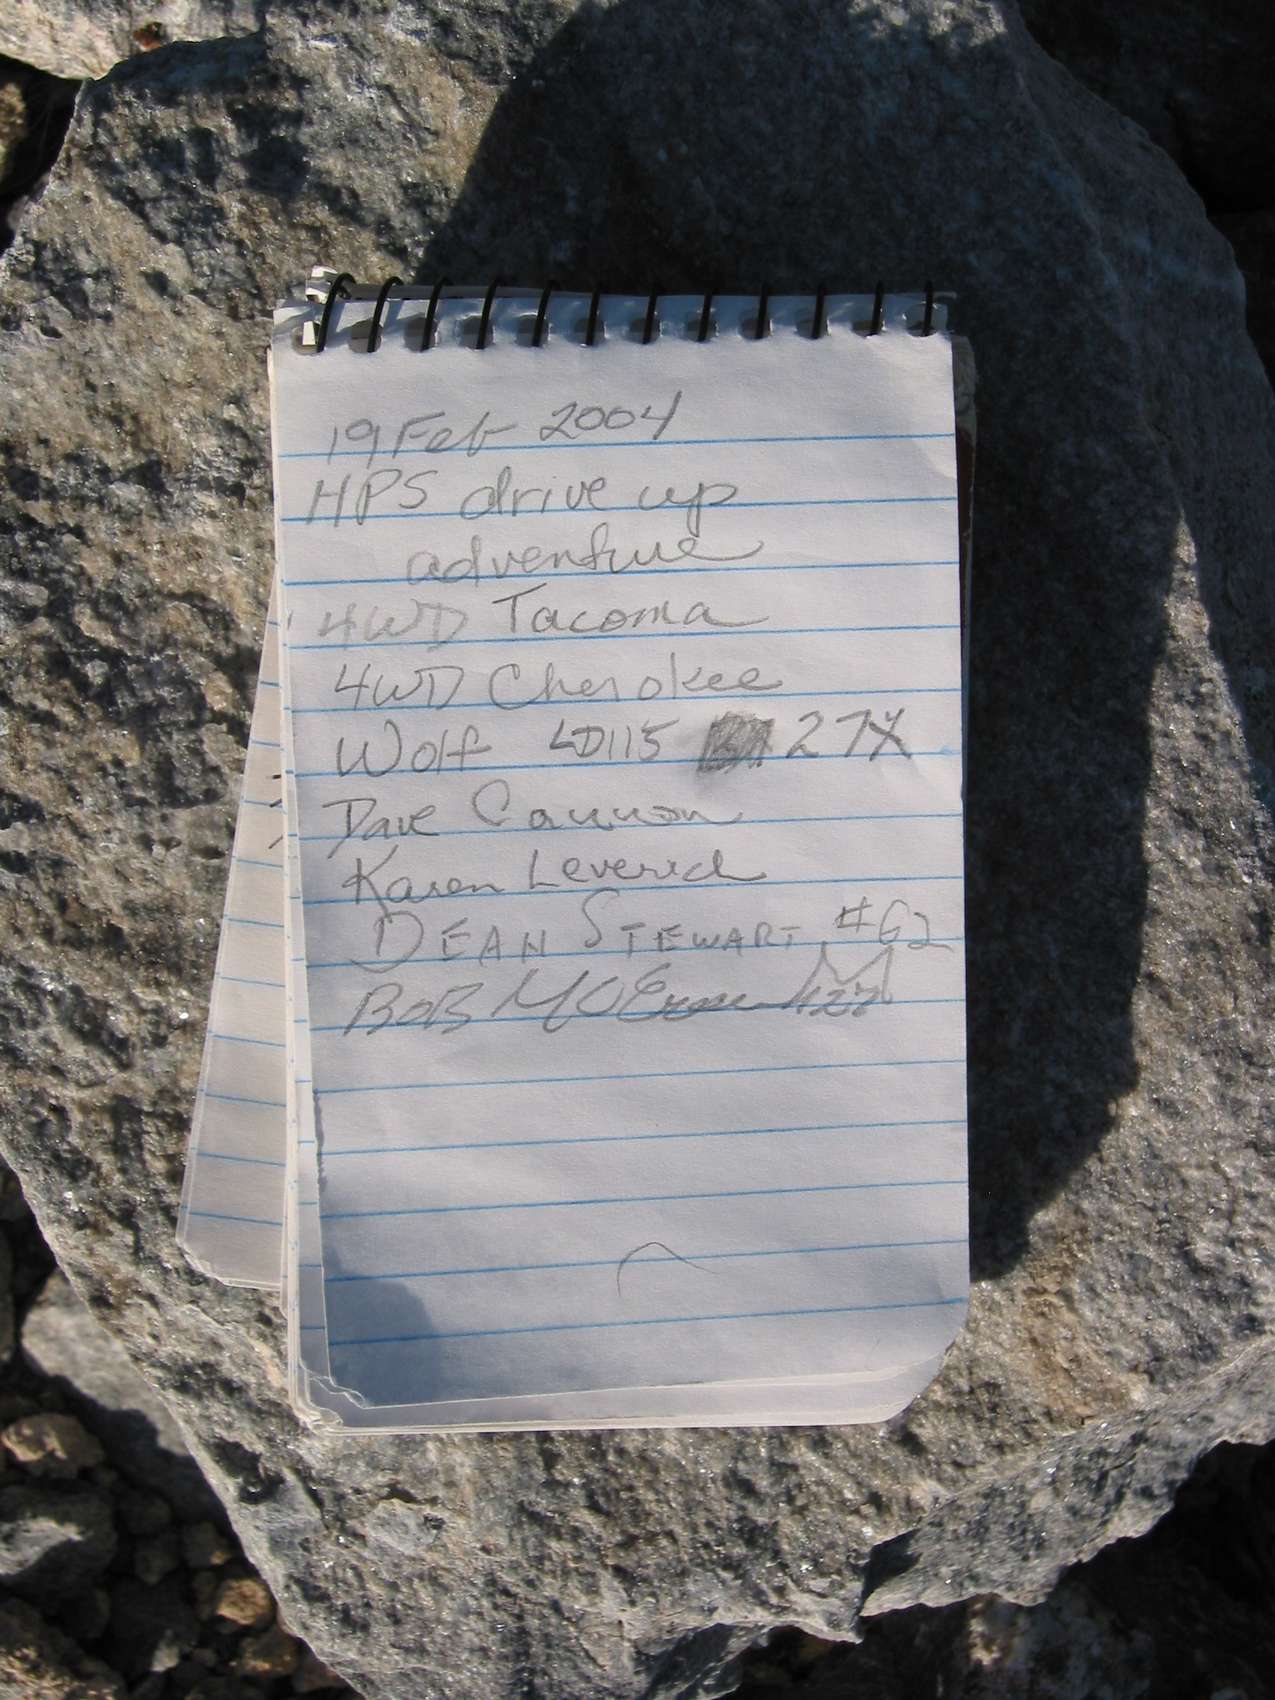 19 Feb 2004
HPS drive up
adventure
4WD Tacoma
4WD Cherokee
Wolf LD115 27X
Dave Cannon
Karen Leverich
DEAN STEWART, #62
BOB